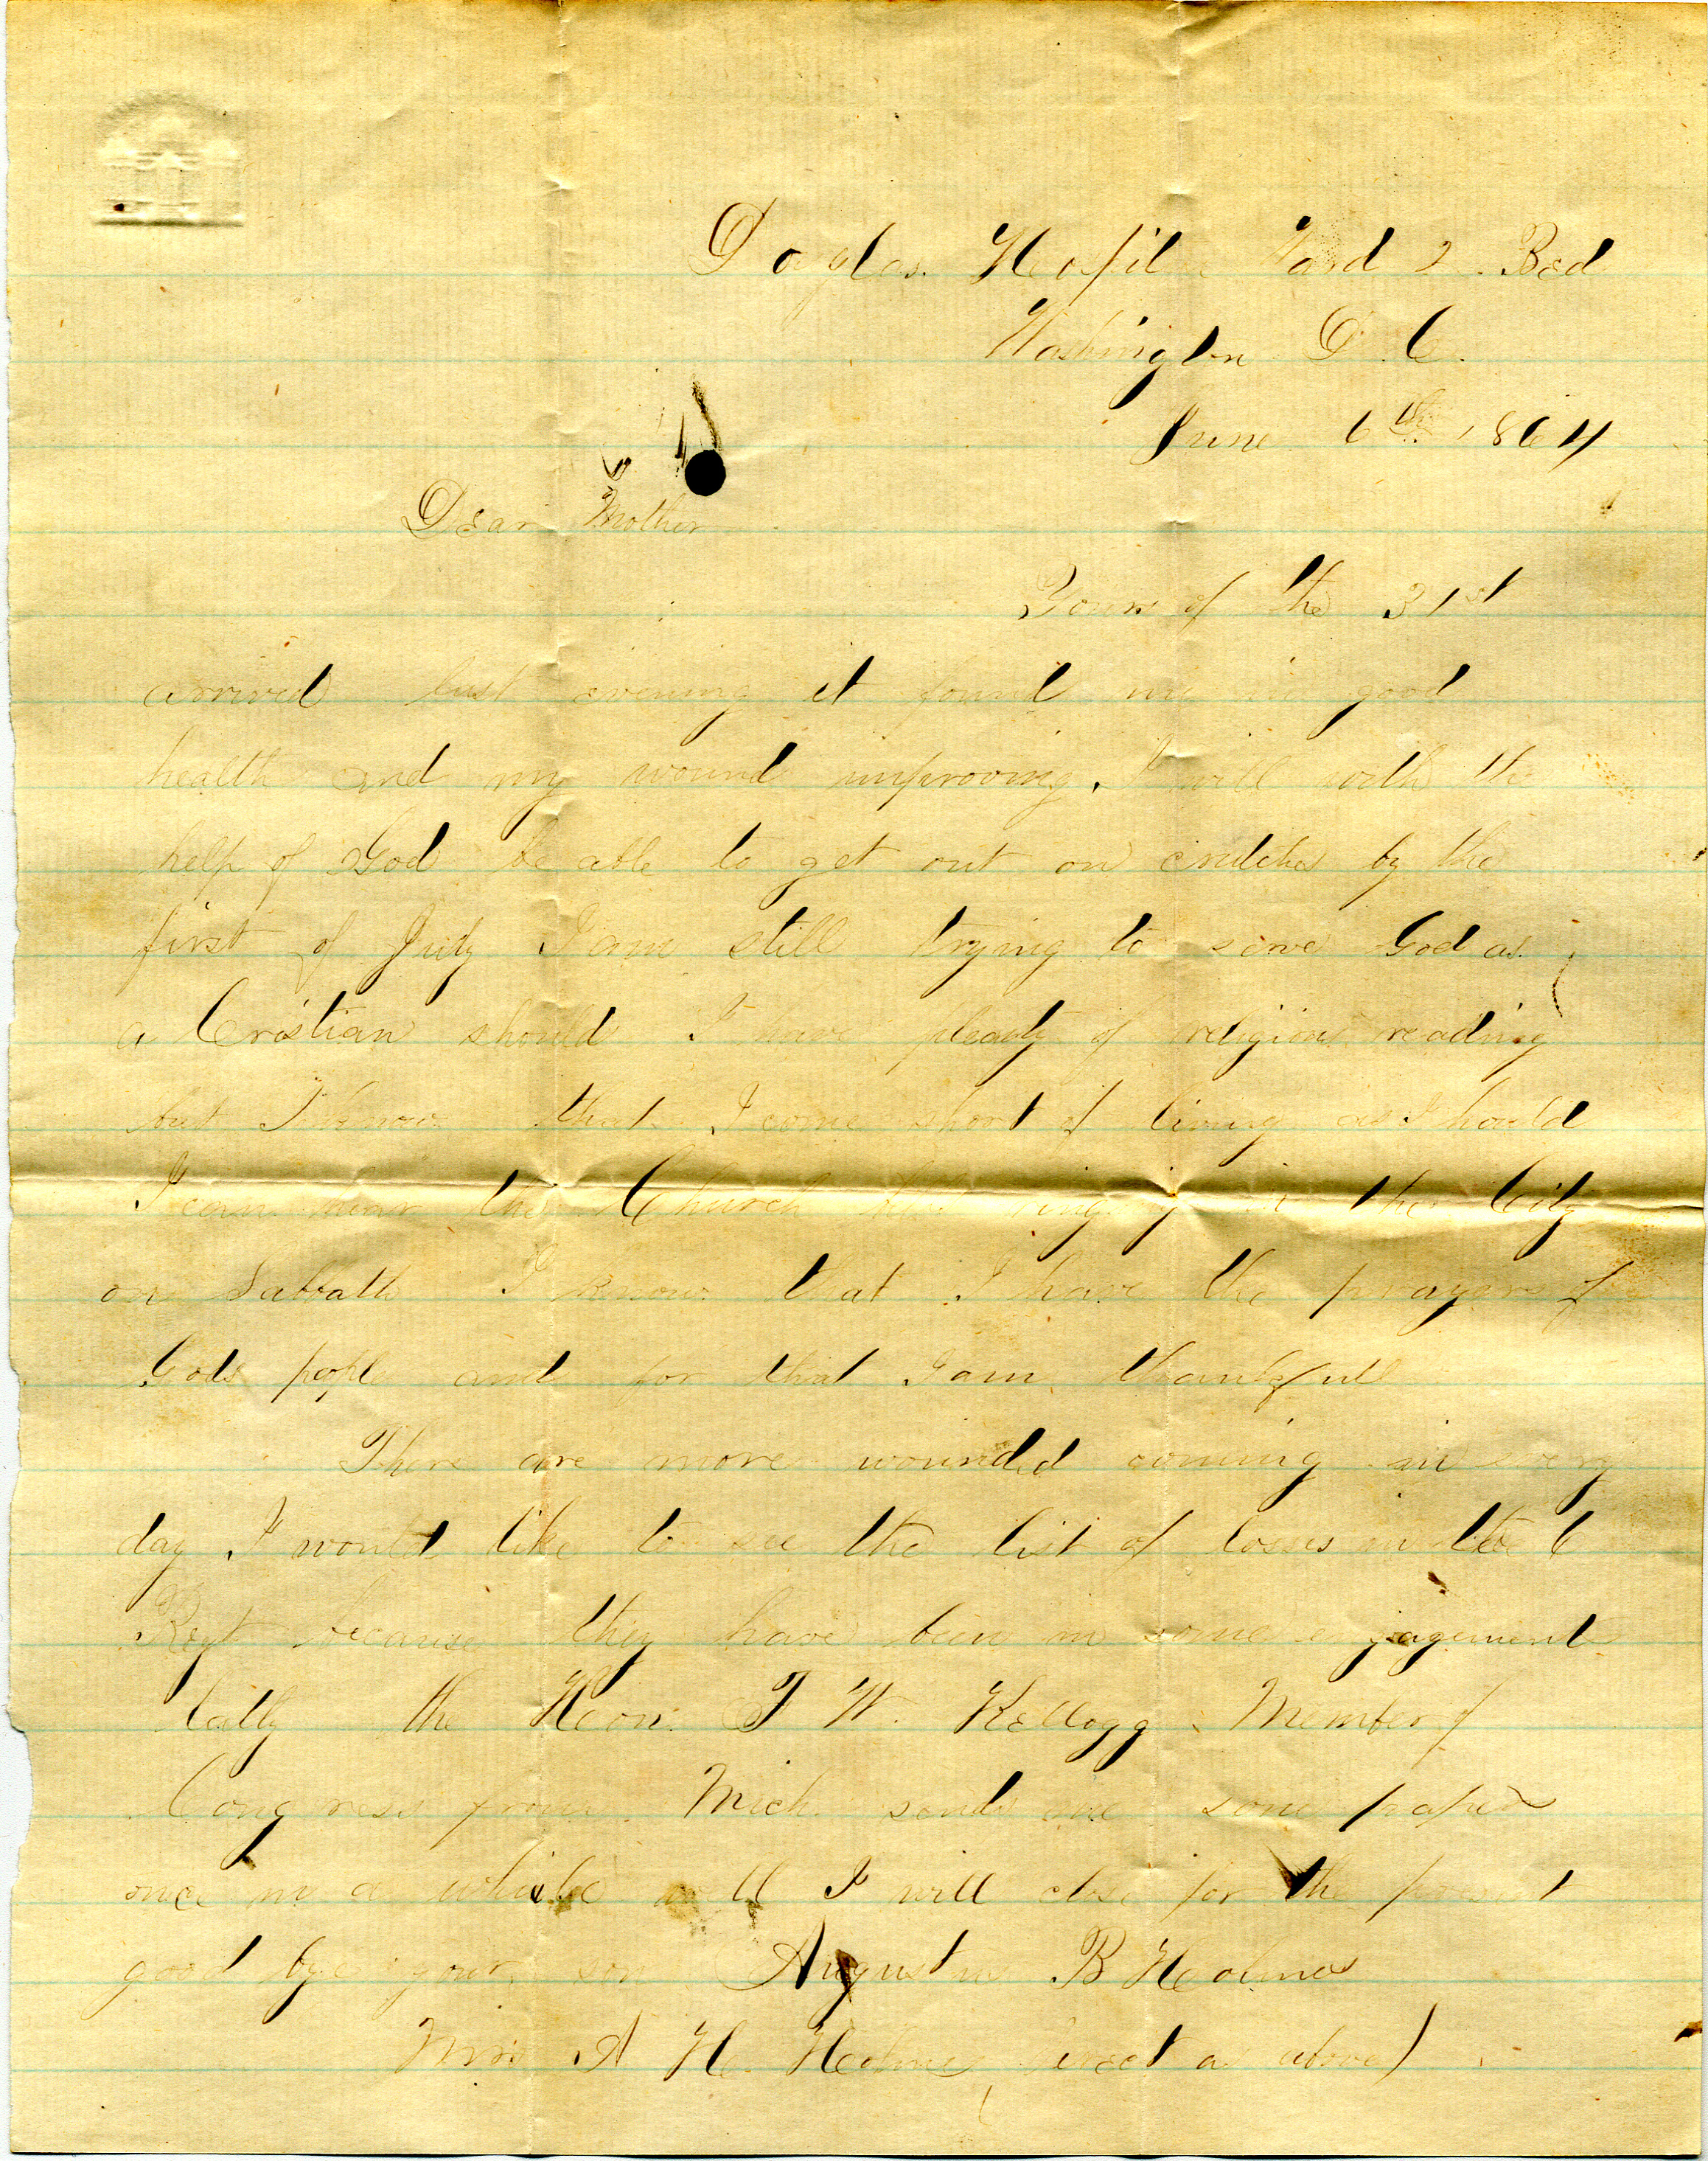 Douglas Hospital Ward 2. Bed
Washington D. C.
June 6th 1864
Dear Mother
Yours of the 31st
arrived last evening it found me in good
health and my wound improoving. I will with the
help of God be able to get out on crutches by the
first of July I am still trying to serve God as
a Cristian should. I have pleanty of religious reading
but I know that I come short of living as I should
I can hear the Church bells ringing in the City
on Sabbath I know that I have the prayers of
Gods people and for that I am thankfull
There are more wounded coming in every
day I would like to see the list of losses in the 6
Regt because they have been in some engagement
latly the Hon. F W. Kellogg Member of
Congress from Mich. sends me some papers
once in a while well I will close for the present
good bye your son Augustus B Holmes
Mrs A H. Holmes direct as above)